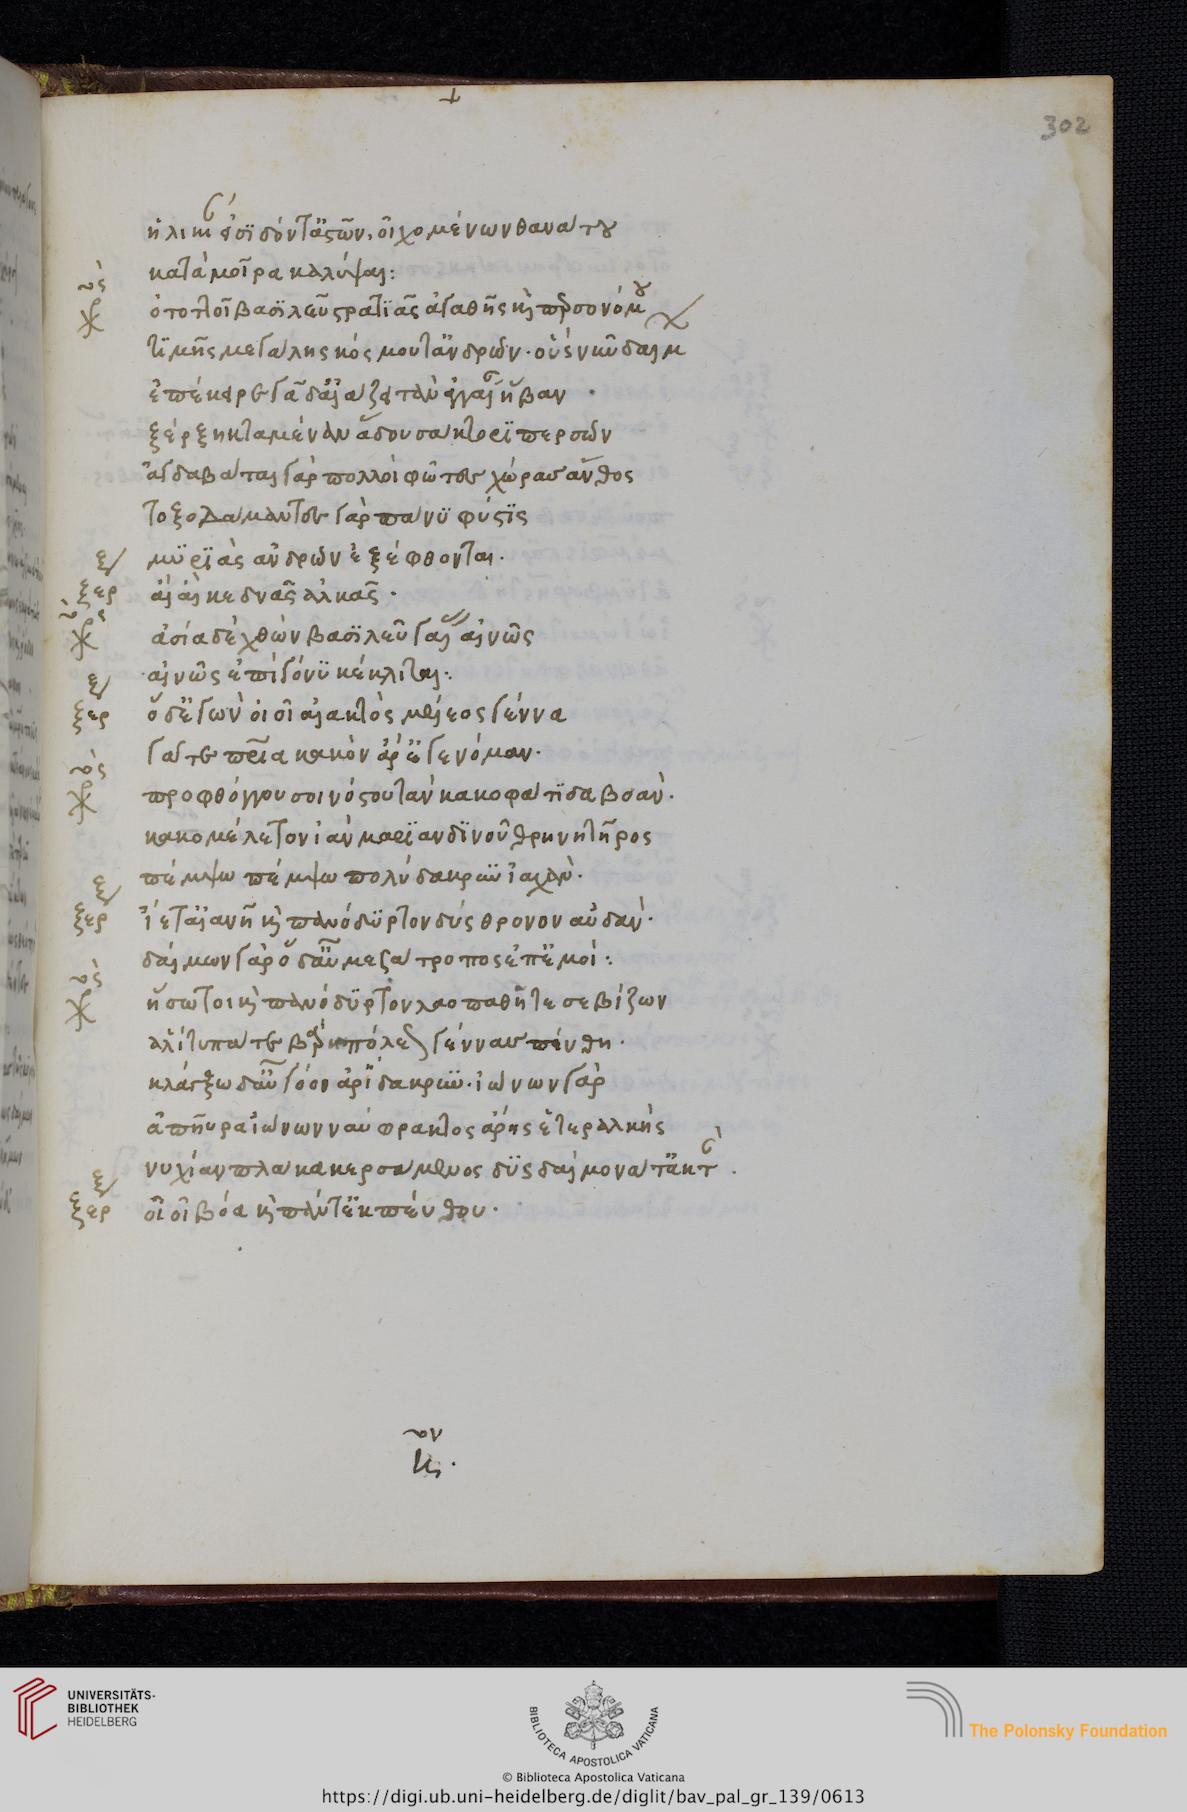 302
ἡλικίας ἰδόντας ὧν, οἰχομένων θανάτου
κατὰ μοῖρα καλύψαι:
χος ὀτοτοῖ βασιλεῦ στρατιᾶς ἀγαθῆς καὶ περσονόμου
τιμῆς μεγάλης κόσμου τ' ἀνδρῶν· οὓς νῦν δαίμ
ἐπέκειρε γᾶ δ' αἰάζει τὰν ἐγγαίαν ἥβαν ·
ξέρξῃ κταμέναν ἅδου σάκτορι περσῶν
ἀγδαβάται γὰρ πολλοὶ φῶτες χώρας ἄνθος
τοξοδάμαντες γὰρ πάνυ φύστις
μυριὰς ἀνδρῶν ἐξέφθονται.
ξερ αἰ αἰ κεδνᾶς ἀλκᾶς·
χος ἀσία δὲ χθὼν βασιλεῦ γαίας αἰνῶς
αἰνῶς ἐπὶ γόνυ κέκλιται.
ξερ ὅδ' ἐγὼν οἰοῖ αἰακτὸς μέλεος γέννα
γᾷ τε πατρίᾳ κακὸν ἄρ' ἐγενόμαν·
χος προφθόγγου σοι νόστου τὰν κακοφάτιδα βοάν.
κακομέλετον ἰὰν μαριανδινοῦ θρηνητῆρος
πέμψω πέμψω πολύδακρυν ἰαχάν.
ξερ ἵετ' αἰανῆ καὶ πανόδυρτον δύσθρονον αὐδάν.
δαίμων γὰρ ὅδ' αὖ μετάτροπος ἐπ' ἐμοί:
χος ἥσω τοι καὶ πανόδυρτον λαοπαθῆ τε σεβίζων
ἁλίτυπά τε βάρη πόλεως γέννας πένθη.
κλάγξω δ' αὖ γόον ἀρίδακρυν. ἰώνων γὰρ
ἀπηύρα ἰώνων ναύφρακτος ἄρης ἑτεραλκὴς
νυχίαν πλάκα κερσάμενος δυσδαίμονά τ' ἀκτ .
ξερ οἰοῖ βόα καὶ πάντ' ἐκπεύθου.
UNIVERSITÄTS-
BIBLIOTHEK
HEIDELBERG
BIBLIOTECA APOSTOLICA VATICANA
The Polonsky Foundation
© Biblioteca Apostolica Vaticana
https://digi.ub.uni-heidelberg.de/diglit/bav_pal_gr_139/0613